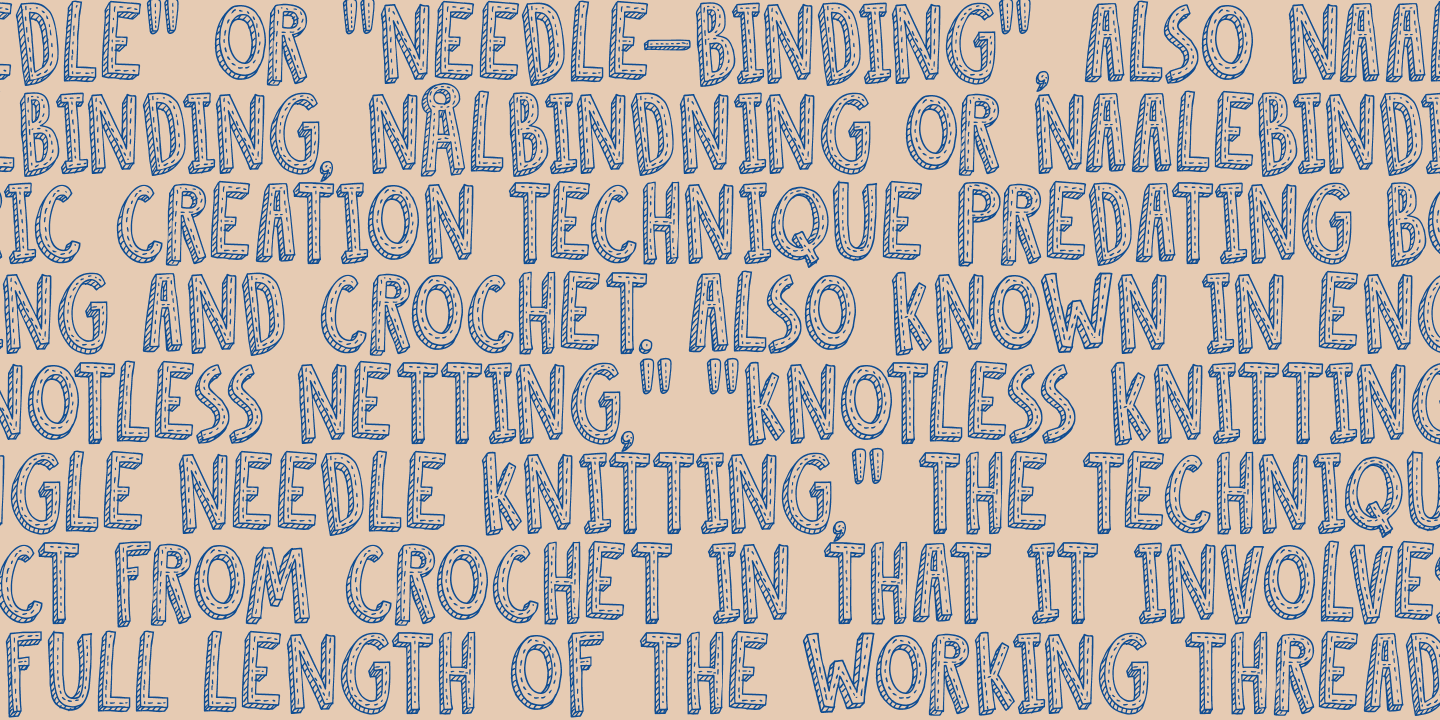 DLE" OR "NEEDLE-BINDING", ALSO NAA
LBINDING, NÅLBINDNING OR NAALEBINDI
RIC CREATION TECHNIQUE PREDATING BO
NG AND CROCHET. ALSO KNOWN IN ENG
NOTLESS NETTING," "KNOTLESS KNITTING
NGLE NEEDLE KNITTING," THE TECHNIQU
CT FROM CROCHET IN THAT IT INVOLVES
FULL LENGTH OF THE WORKING THREAD